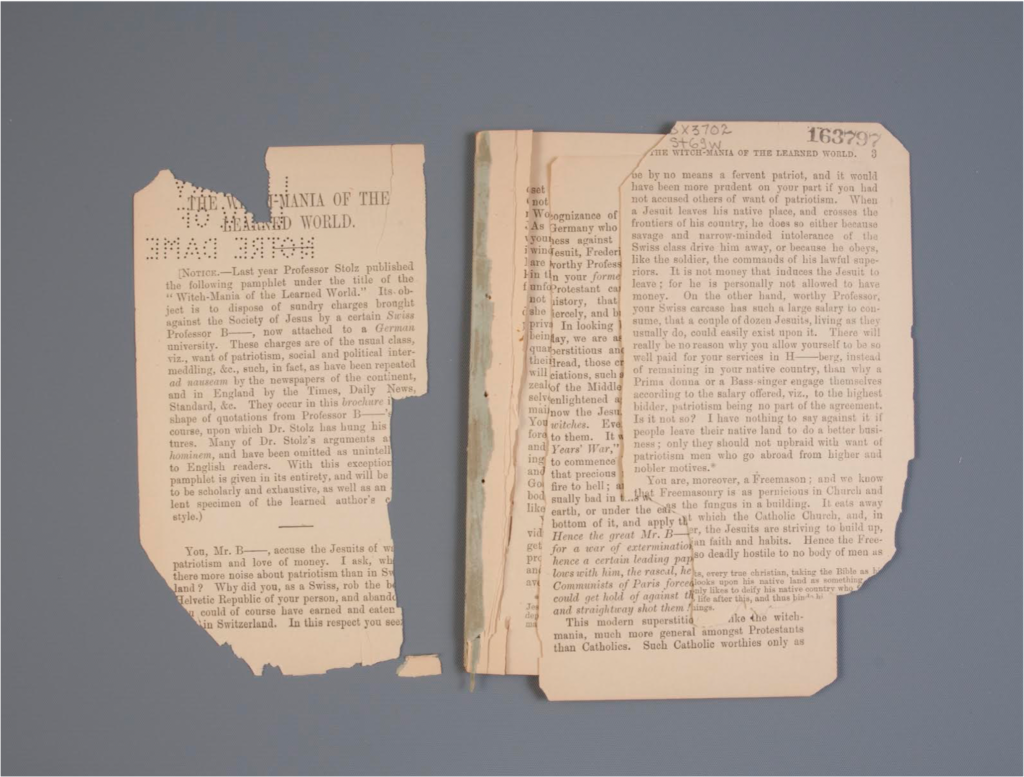 THE WITCH-MANIA OF THE
LEARNED WORLD.
NOTRE DAME
[NOTICE.—Last year Professor Stolz published
the following pamphlet under the title of the
"Witch-Mania of the Learned World." Its ob-
ject is to dispose of sundry charges brought
against the Society of Jesus by a certain Swiss
Professor B——, now attached to a German
university. These charges are of the usual class,
viz., want of patriotism, social and political inter-
meddling, &c., such, in fact, as have been repeated
ad nauseam by the newspapers of the continent,
and in England by the Times, Daily News,
Standard, &c. They occur in this brochure
shape of quotations from Professor B——'s
course, upon which Dr. Stolz has hung his
tures. Many of Dr. Stolz's arguments
hominem, and have been omitted as unintell
to English readers. With this exception
pamphlet is given in its entirety, and will be
to be scholarly and exhaustive, as well as an
lent specimen of the learned author's
style.)
You, Mr. B——, accuse the Jesuits of
patriotism and love of money. I ask, wh
there more noise about patriotism than in Sw
land? Why did you, as a Swiss, rob the
Helvetic Republic of your person, and aband
could of course have earned and eaten
in Switzerland. In this respect you see
set
not
We
As
you
wind
are
in t
unfo
not
she
priv
bein
qua
thei
will
zeal
selv
mai
You
for
and
ing
and
Go
bod
like
vid
get
pr
and
av
ognizance of
Germany who
ness against
Jesuit, Frederi
worthy Profess
n your forme
Protestant ca
istory, that
iercely, and b
In looking
day, we are a
perstitions an
dread, those cr
ciations, such
of the Middle
enlightened a
now the Jesu
witches. Eve
to them. It w
Years' War,"
to commence
that precious
fire to hell; a
sually bad in t
earth, or under the ea
bottom of it, and apply t
Hence the great Mr. B——
for a war of extermination
hence a certain leading pap
lows with him, the rascal, he
Communists of Paris forced
could get hold of against th
and straightway shot them
This modern superstitio like the witch-
mania, much more general amongst Protestants
than Catholics. Such Catholic worthies only as
BX3702
St69w
163797
THE WITCH-MANIA OF THE LEARNED WORLD. 3
be by no means a fervent patriot, and it would
have been more prudent on your part if you had
not accused others of want of patriotism. When
a Jesuit leaves his native place, and crosses the
frontiers of his country, he does so either because
savage and narrow-minded intolerance of the
Swiss class drive him away, or because he obeys,
like the soldier, the commands of his lawful supe-
riors. It is not money that induces the Jesuit to
leave; for he is personally not allowed to have
money. On the other hand, worthy Professor,
your Swiss carcase has such a large salary to con-
sume, that a couple of dozen Jesuits, living as they
usually do, could easily exist upon it. There will
really be no reason why you allowed yourself to be so
well paid for your services in H——berg, instead
of remaining in your native country, than why a
Prima donna or a Bass-singer engage themselves
according to the salary offered, viz., to the highest
bidder, patriotism being no part of the agreement.
Is it not so? I have nothing to say against it if
people leave their native land to do a better busi-
ness; only they should not upbraid with want of
patriotism men who go abroad from higher and
nobler motives.*
You are, moreover, a Freemason; and we know
that Freemasonry is as pernicious in Church and
as the fungus in a building. It eats away
at which the Catholic Church, and, in
er, the Jesuits are striving to build up,
an faith and habits. Hence the Free-
so deadly hostile to no body of men as
ts, every true christian, taking the Bible as
looks upon his native land as something
only likes to deify his native country who
life after this, and thus
hings.